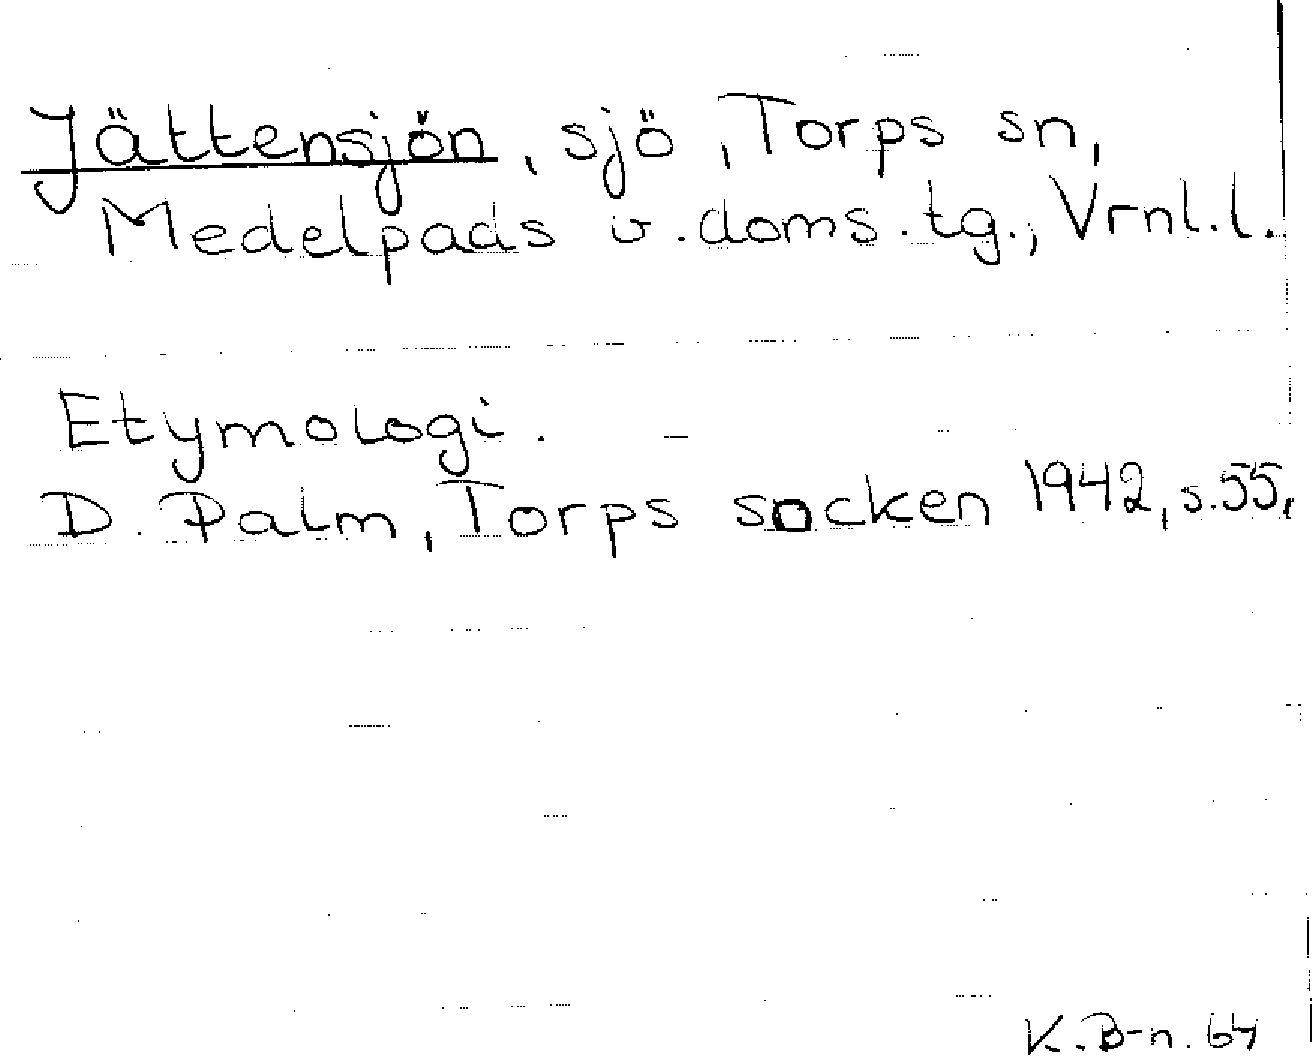 Jättensjön, sjö, Torps sn,
Medelpads v. doms. tg., Vrnl. l.
Etymologi.
D. Palm, Torps socken 1942, s. 55.
K. B-n. 64